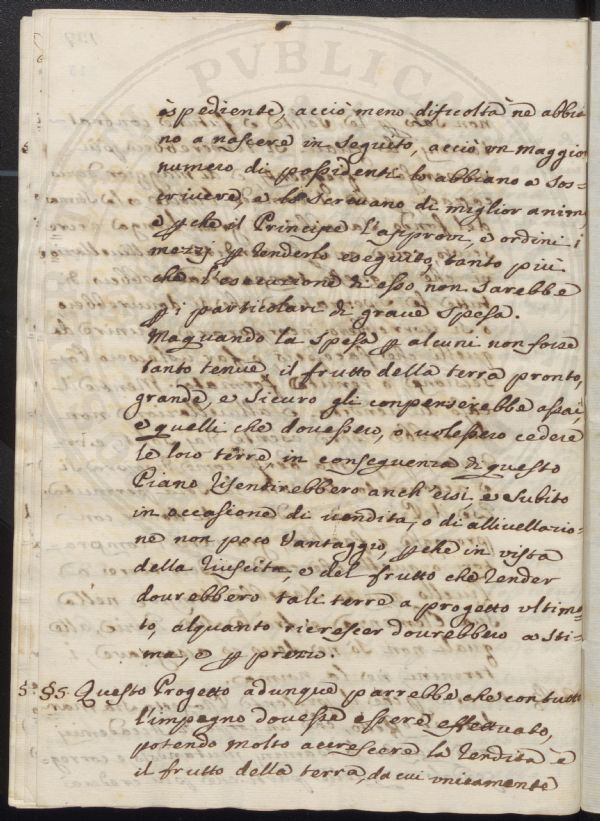 espediente, acciò meno dificoltà ne abbia-
no a nascere in seguito, acciò un maggior
numero di possidenti lo abbiano a sos-
crivere, e lo scrivano di miglior animo,
e p che il Principe l'approvi, e ordini i
mezzi p renderlo eseguito, tanto più
che l'esecuzione di esso non sarebbe
p i particolari di grave spesa.
Ma quando la spesa p alcuni non fosse
tanto tenue, il frutto della terra pronto,
grande, e sicuro gli conpenserebbe assai,
e quelli che dovessero, o volessero cedere
le loro terre, in conseguenza di questo
Piano risentirebbero anch'essi e subito
in occasione di vendita, o di allivellazio-
ne non poco vantaggio, p che in vista
della riuscita, e del frutto che render
dovrebbero tali terre a progetto ultima-
to, alquanto ricrescer dovrebbero a sti-
ma, e p prezzo.
§ §5. Questo Progetto adunque parrebbe che con tutto
l'impegno dovesse essere effettuato,
potendo molto accrescere la rendita e
il frutto della terra, da cui unitamente
PUBLICA